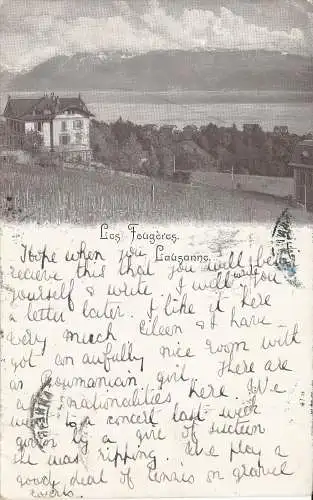 Les Fougères.
Lausanne.
Hope when you
receive this that you will be
yourself & write I will write you
a letter later. I like it here
very much Eileen & I have
got an awfully nice room with
a Roumanian girl. There are
all nationalities here. We
went to a concert last week
given by a girl of
she was ripping. We play a
good deal of tennis on gravel
courts.